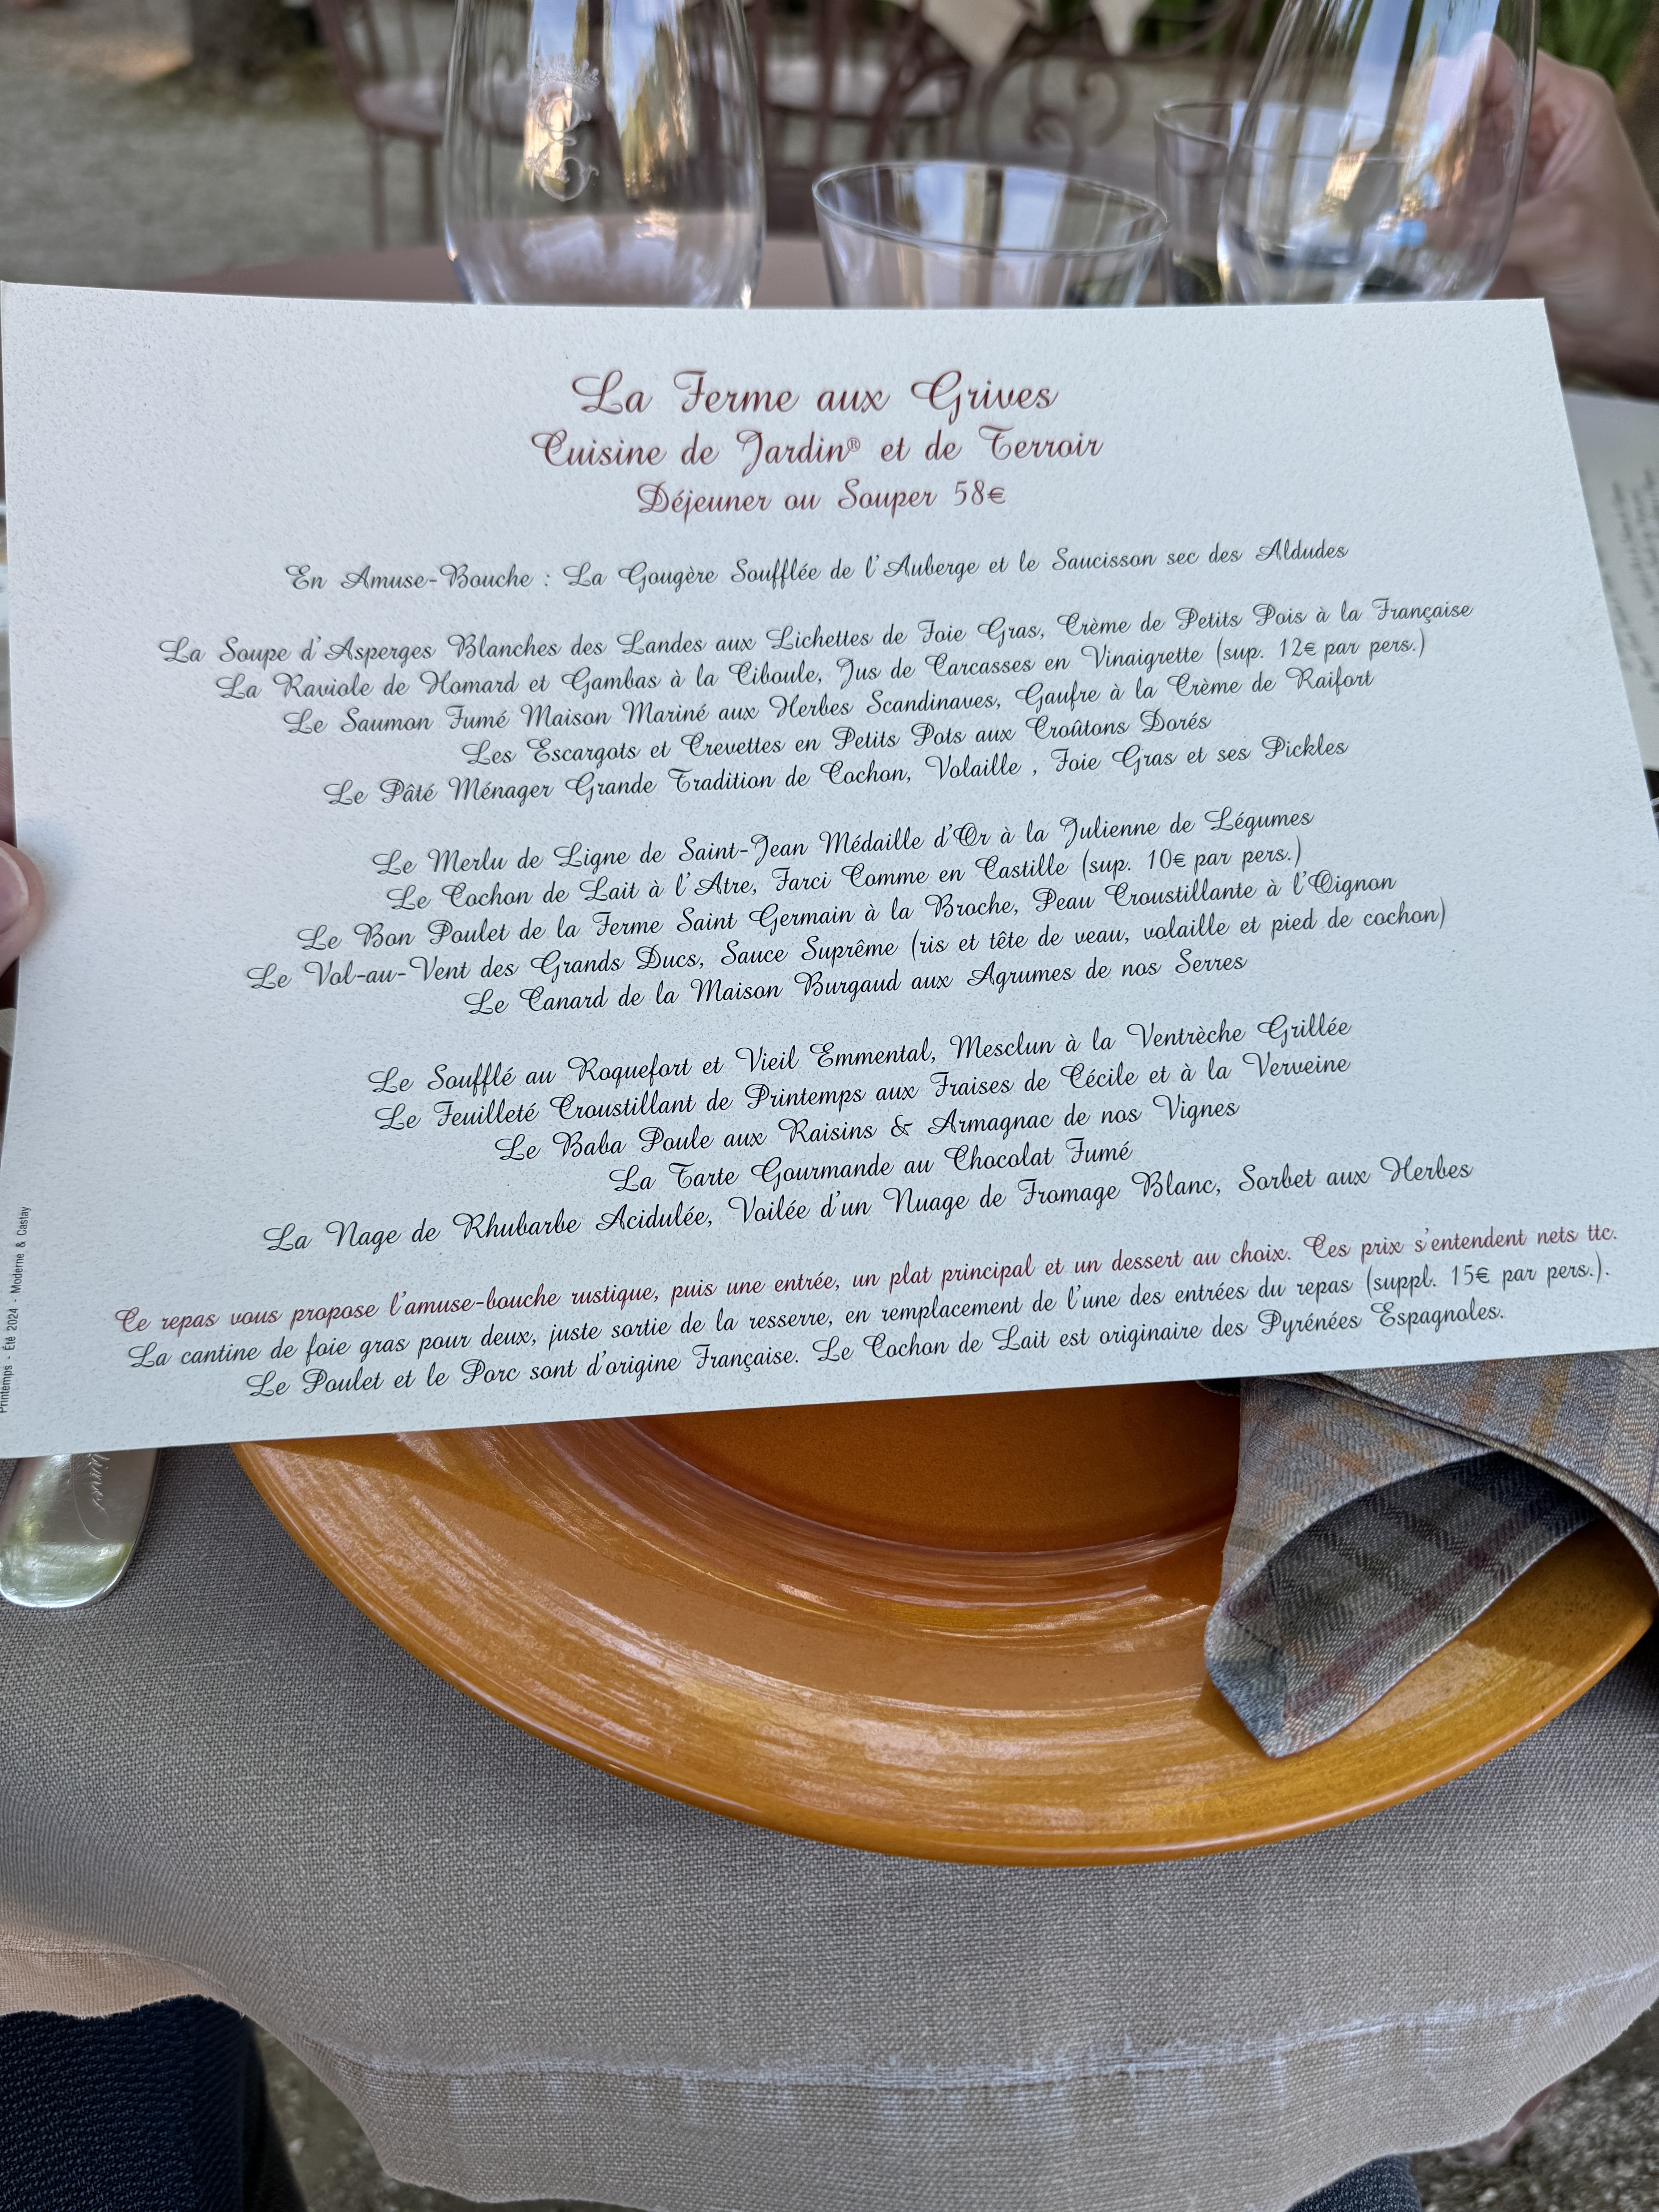 La Ferme aux Grives
Cuisine de Jardin® et de Terroir
Déjeuner ou Souper 58€
En Amuse-Bouche : La Gougère Soufflée de l'Auberge et le Saucisson sec des Aldudes
La Soupe d'Asperges Blanches des Landes aux Lichettes de Foie Gras, Crème de Petits Pois à la Française
La Raviole de Homard et Gambas à la Ciboule, Jus de Carcasses en Vinaigrette (sup. 12€ par pers.)
Le Saumon Fumé Maison Mariné aux Herbes Scandinaves, Gaufre à la Crème de Raifort
Les Escargots et Crevettes en Petits Pots aux Croûtons Dorés
Le Pâté Ménager Grande Tradition de Cochon, Volaille , Foie Gras et ses Pickles
Le Merlu de Ligne de Saint-Jean Médaille d'Or à la Julienne de Légumes
Le Cochon de Lait à l'Atre, Farci Comme en Castille (sup. 10€ par pers.)
Le Bon Poulet de la Ferme Saint Germain à la Broche, Peau Croustillante à l'Oignon
Le Vol-au-Vent des Grands Ducs, Sauce Suprême (ris et tête de veau, volaille et pied de cochon)
Le Canard de la Maison Burgaud aux Agrumes de nos Serres
Le Soufflé au Roquefort et Vieil Emmental, Mesclun à la Ventrèche Grillée
Le Feuilleté Croustillant de Printemps aux Fraises de Cécile et à la Verveine
Le Baba Poule aux Raisins & Armagnac de nos Vignes
La Tarte Gourmande au Chocolat Fumé
La Nage de Rhubarbe Acidulée, Voilée d'un Nuage de Fromage Blanc, Sorbet aux Herbes
Ce repas vous propose l'amuse-bouche rustique, puis une entrée, un plat principal et un dessert au choix. Ces prix s'entendent nets ttc.
La cantine de foie gras pour deux, juste sortie de la resserre, en remplacement de l'une des entrées du repas (suppl. 15€ par pers.).
Le Poulet et le Porc sont d'origine Française. Le Cochon de Lait est originaire des Pyrénées Espagnoles.
Printemps - Été 2024 - Moderne & Castay